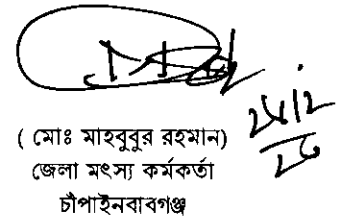 ( মোঃ মাহবুবুর রহমান)
জেলা মৎস্য কর্মকর্তা
চাঁপাইনবাবগঞ্জ